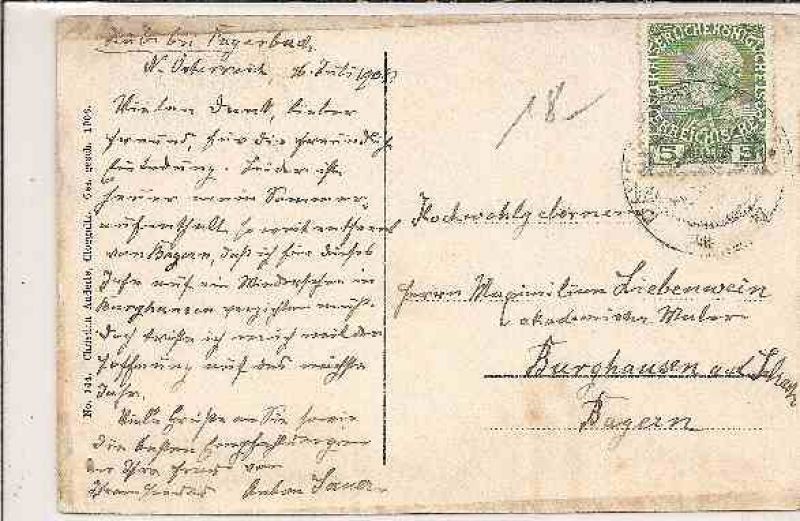 bei Payerbach,
N. Österreich, 26. Juli 1909.
Vielen Dank, lieber
Freund, für die freundliche
Einladung. Leider ist
heuer mein Sommer-
aufenthalt so weit entfernt
von Bayern, daß ich für dieses
Jahr auf ein Wiedersehen in
Burghausen verzichten muß.
Doch tröste ich mich mit der
Hoffnung auf das nächste
Jahr.
Viele Grüße an Sie sowie
die besten Empfehlungen
an Ihre Frau von
Ihrem Anton Sauer
No. 144. Christian Auderle, Gloggnitz. Ges. gesch. 1908.
18
5 5
Hochwohlgeboren
Herrn Maximilian Liebenwein
akademischer Maler
Burghausen a. d. Salzach
Bayern